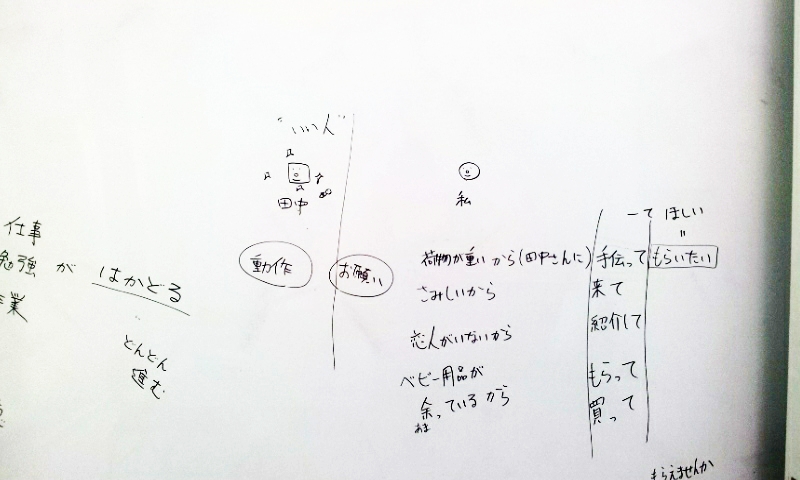 "いい人"
田中
私
仕事
勉強 が はかどる
業
どんどん
進む
動作
お願い
ーて ほしい
〃
荷物が重いから(田中さんに) 手伝って もらいたい
さみしいから 来て
恋人がいないから 紹介して
ベビー用品が もらって
余っているから 買って
あま
もらえませんか